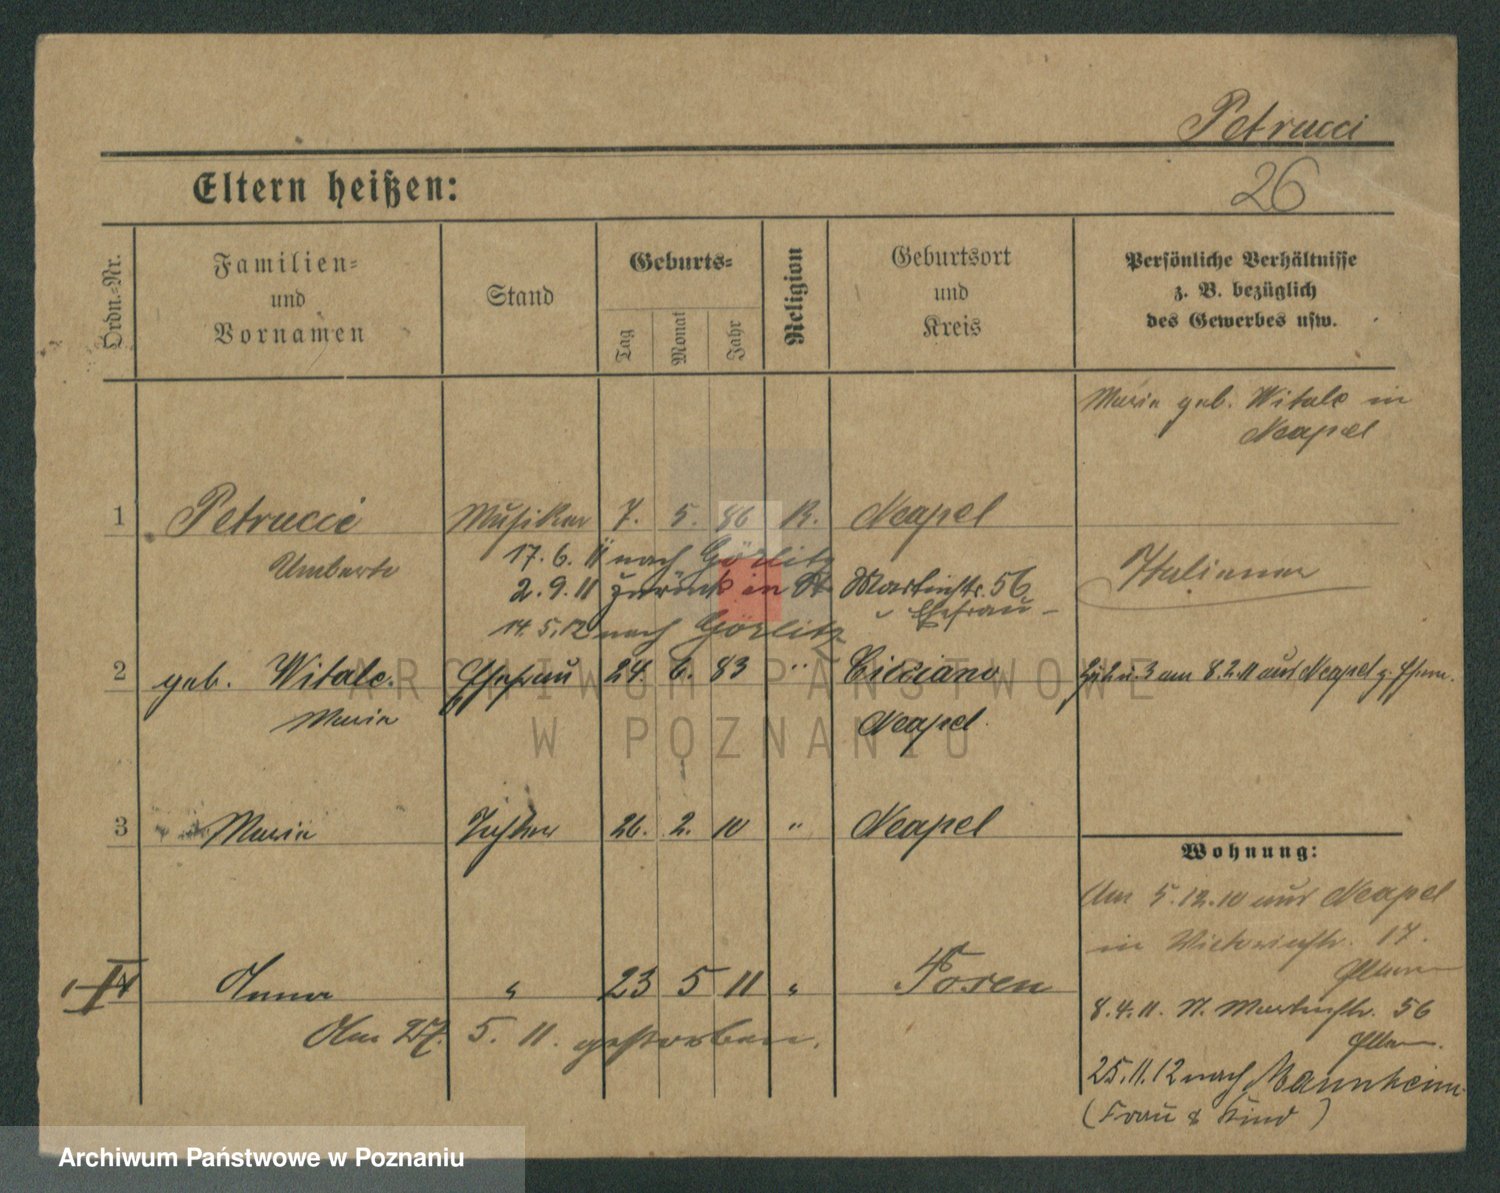 Petrucci
Eltern heißen:
26
Ordn.-Nr.
Familien-
und
Vornamen
Stand
Geburts-
Tag
Monat
Jahr
Religion
Geburtsort
und
Kreis
Persönliche Verhältnisse
z. B. bezüglich
des Gewerbes usw.
Maria geb. Witale in
Neapel
1 Petrucci Musiker 7. 5. 86 K. Neapel
Umberto
17. 6. 11 nach Görlitz
Italiener
2. 9. 11 zurück in St. Martinstr. 56
u Ehefrau
14. 5. 12 nach Görlitz
2 geb. Witale. Ehefrau 24. 6. 83 " Cicciano
2 u. 3 am 8.2.11 aus Neapel z.
Maria Neapel.
ARCHIWUM PAŃSTWOWE
W POZNANIU
3 Maria Tochter 26. 2. 10 " Neapel
Wohnung:
Am 5.12.10 aus Neapel
in Victoriastr. 17.
4 Anna " 23 5 11 " Posen
8.4.11. St. Martinstr. 56
Am 27. 5. 11. gestorben.
25.11.12 nach Mannheim
(Frau & Kind)
Archiwum Państwowe w Poznaniu